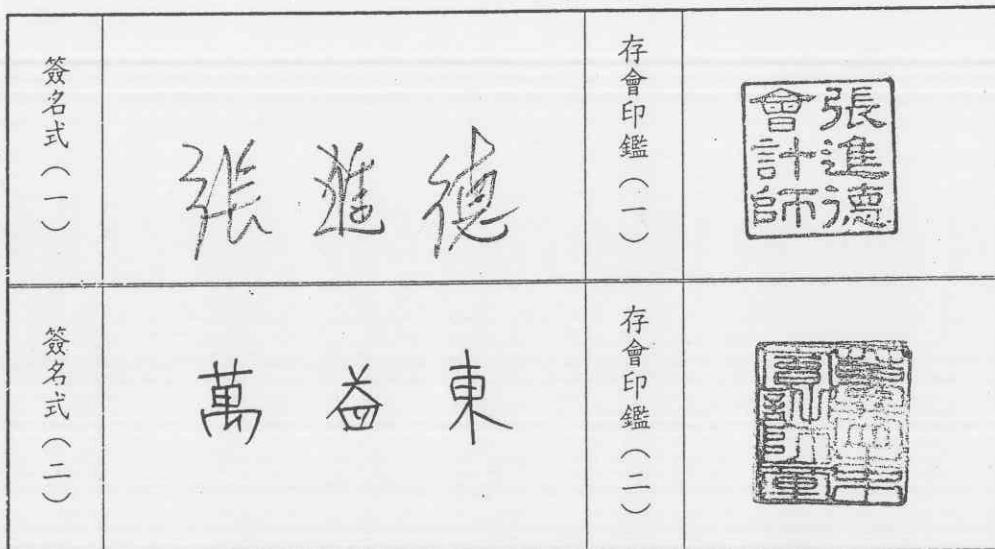 簽名式（一）
張進德
存會印鑑（一）
張進德
會計師
簽名式（二）
萬益東
存會印鑑（二）
萬益東